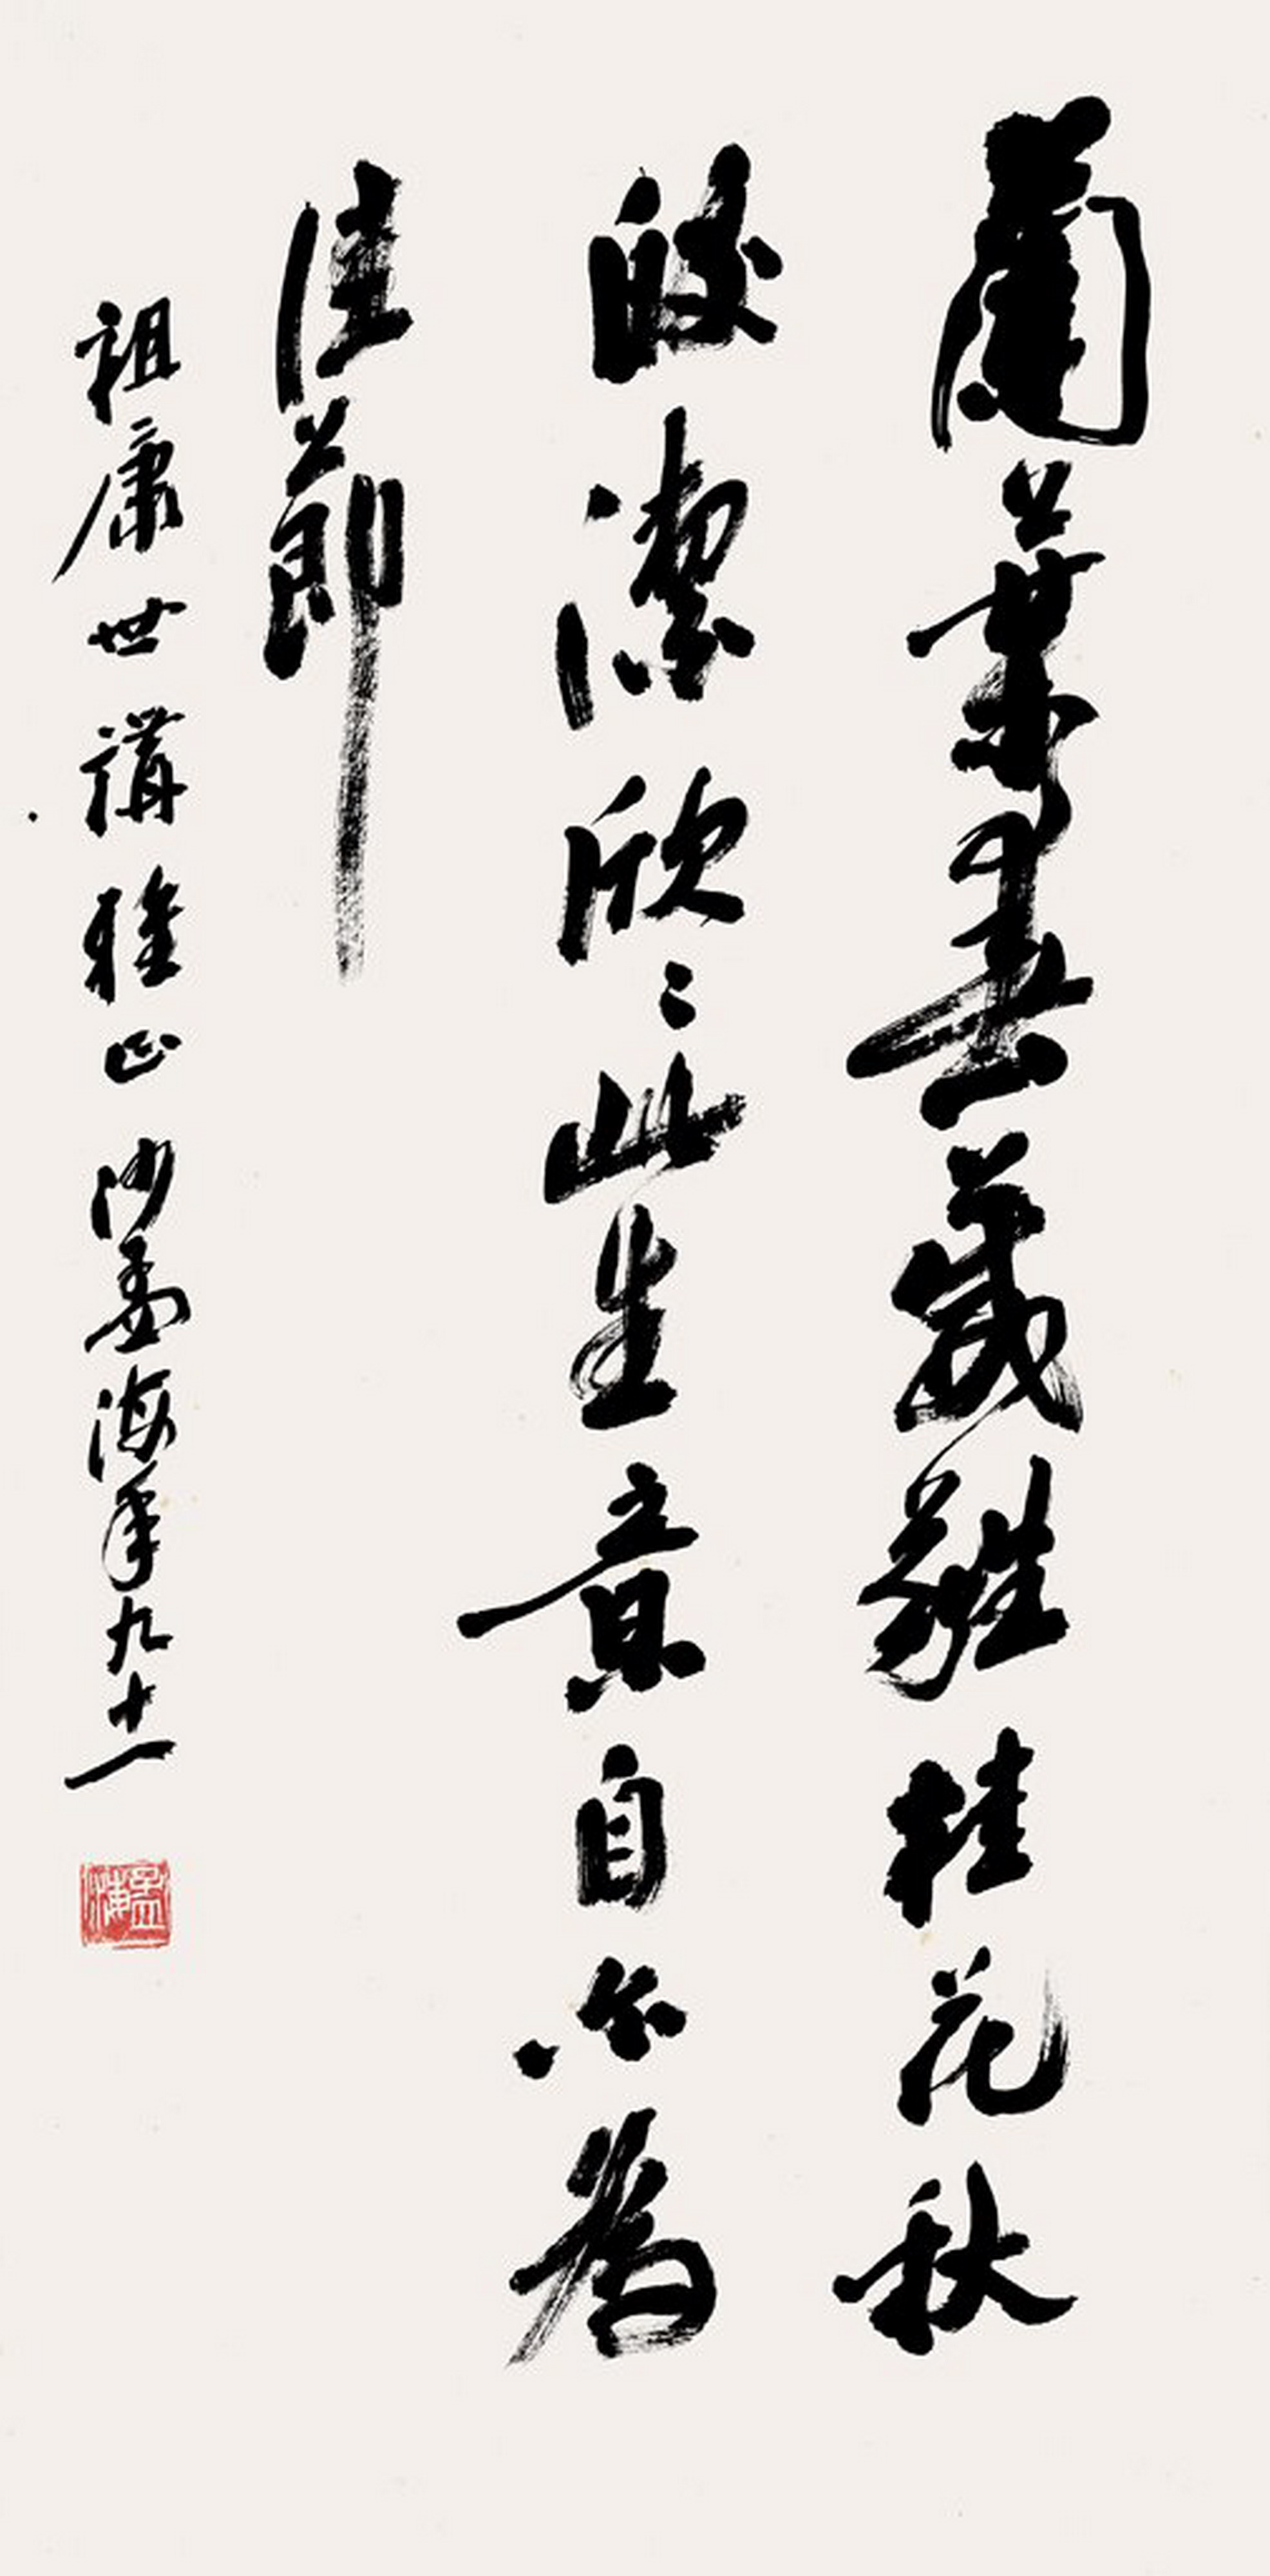 蘭葉春葳蕤桂花秋
皎潔欣〻此生意自尓為
佳節
祖康世講雅正沙孟海年九十一
孟海